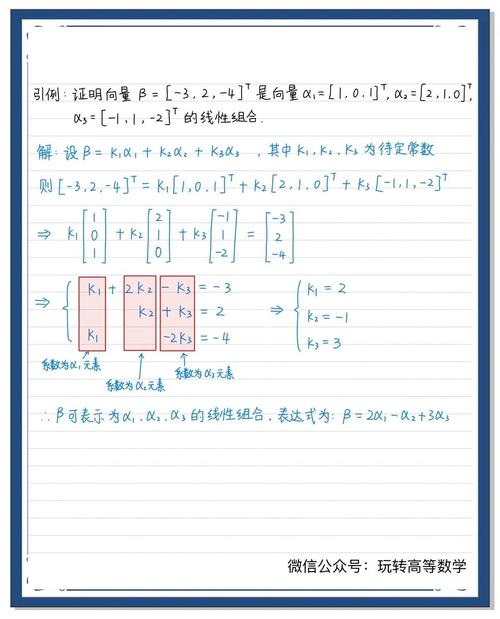 引例：证明向量 β = [-3, 2, -4]ᵀ 是向量 α₁=[1, 0, 1]ᵀ, α₂=[2, 1, 0]ᵀ,
α₃ = [-1, 1, -2]ᵀ 的线性组合.
解：设 β = k₁α₁ + k₂α₂ + k₃α₃ , 其中 k₁, k₂, k₃ 为待定常数
则 [-3, 2, -4]ᵀ = k₁[1, 0, 1]ᵀ + k₂[2, 1, 0]ᵀ + k₃[-1, 1, -2]ᵀ
⇒ k₁[1 0 1] + k₂[2 1 0] + k₃[-1 1 -2] = [-3 2 -4]
⇒ { k₁ + 2k₂ - k₃ = -3 ⇒ { k₁ = 2
k₂ + k₃ = 2 k₂ = -1
k₁ -2k₃ = -4 k₃ = 3
系数为α₁元素 系数为α₂元素 系数为α₃元素
∴ β可表示为α₁、α₂、α₃ 的线性组合, 表达式为: β = 2α₁ - α₂ + 3α₃
微信公众号：玩转高等数学